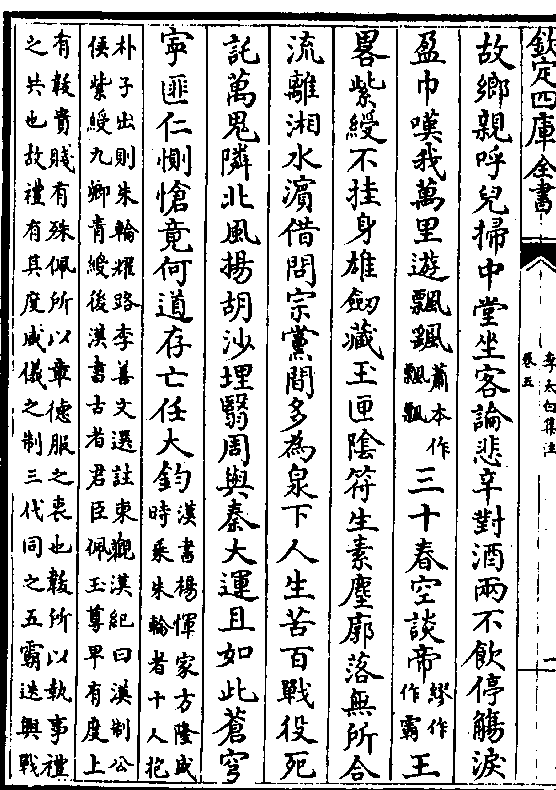 欽定四庫全書
李太白集注
卷五
故鄉親呼兒掃中堂坐客論悲辛對酒兩不飲停觴淚
盈巾嘆我萬里遊飄颻蕭本作飄飄三十春空談帝繆作作霸王
畧紫綬不挂身雄劔藏玉匣陰符生素塵廓落無所合
流離湘水濵借問宗黨間多為泉下人生苦百戰役死
託萬鬼隣北風揚胡沙埋翳周與秦大運且如此蒼穹
寕匪仁惻愴竟何道存亡任大鈞漢書楊惲家方隆盛
時乘朱輪者十人抱
朴子出則朱輪耀路李善文選註東觀漢紀曰漢制公
侯紫綬九卿青綬後漢書古者君臣佩玉尊卑有度上
有韍貴賤有殊佩所以章德服之衷也韍所以執事禮
之共也故禮有其度威儀之制三代同之五霸迭興戰